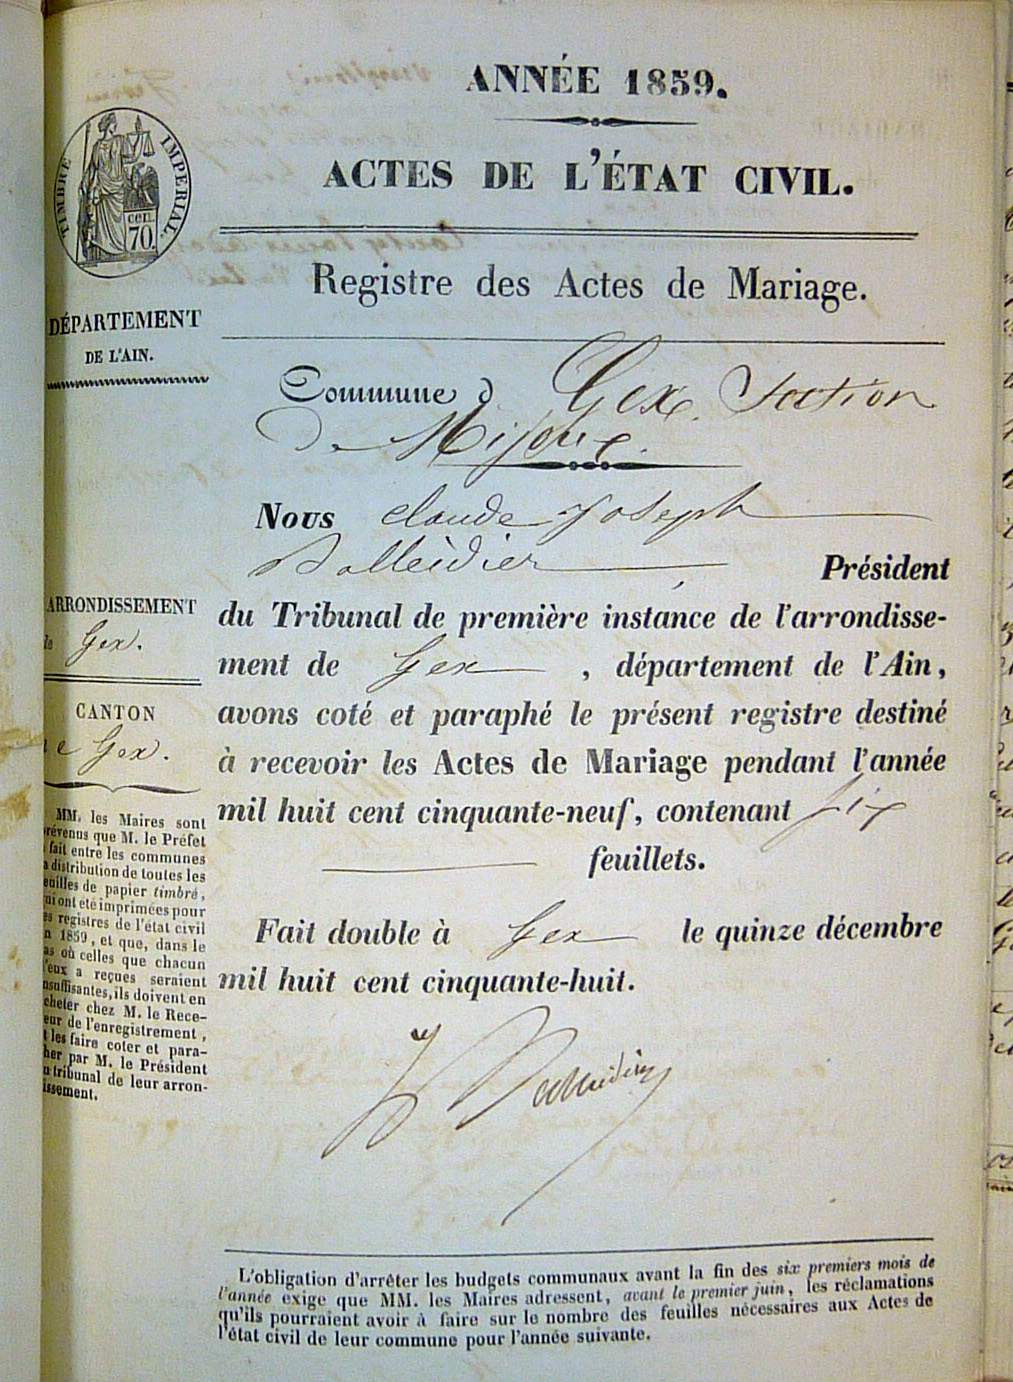 ANNÉE 1859.
ACTES DE L'ÉTAT CIVIL.
TIMBRE IMPERIAL.
cen.
70.
DÉPARTEMENT
DE L'AIN.
Registre des Actes de Mariage.
Commune d Gex. Section
De Mijoux.
Nous Claude Joseph
Balleidier Président
du Tribunal de première instance de l'arrondisse-
ment de Gex , département de l'Ain,
avons coté et paraphé le présent registre destiné
à recevoir les Actes de Mariage pendant l'année
mil huit cent cinquante-neuf, contenant Six
feuillets.
Fait double à Gex le quinze décembre
mil huit cent cinquante-huit.
Balleidier
ARRONDISSEMENT
de Gex.
CANTON
de Gex.
MM. les Maires sont
prévenus que M. le Préfet
a fait entre les communes
la distribution de toutes les
feuilles de papier timbré,
qui ont été imprimées pour
les registres de l'état civil
en 1859, et que, dans le
cas où celles que chacun
d'eux a reçues seraient
insuffisantes, ils doivent en
acheter chez M. le Rece-
veur de l'enregistrement,
et les faire coter et para-
pher par M. le Président
du tribunal de leur arron-
dissement.
L'obligation d'arrêter les budgets communaux avant la fin des six premiers mois de
l'année exige que MM. les Maires adressent, avant le premier juin, les réclamations
qu'ils pourraient avoir à faire sur le nombre des feuilles nécessaires aux Actes de
l'état civil de leur commune pour l'année suivante.